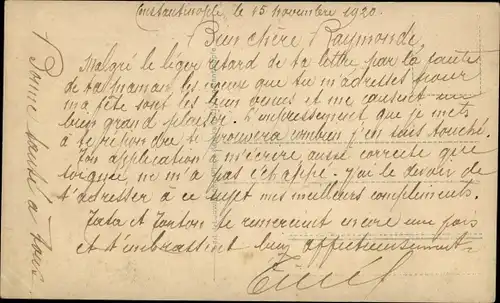 Constantinople, le 15 novembre 1920.
Bien chère Raymonde,
Malgré le léger retard de ta lettre par la faute
de ta maman les voeux que tu m'adresses pour
ma fête sont les bien venus et me causent un
bien grand plaisir. L'empressement que je mets
à te répondre te prouvera combien j'en suis touché.
Ton application à m'écrire aussi correcte que
soignée ne m'a pas échappé. J'ai le devoir de
t'adresser à ce sujet mes meilleurs compliments.
Tata et Tonton te remercient encore une fois
et t'embrassent bien affectueusement.
Bonne santé à tous.